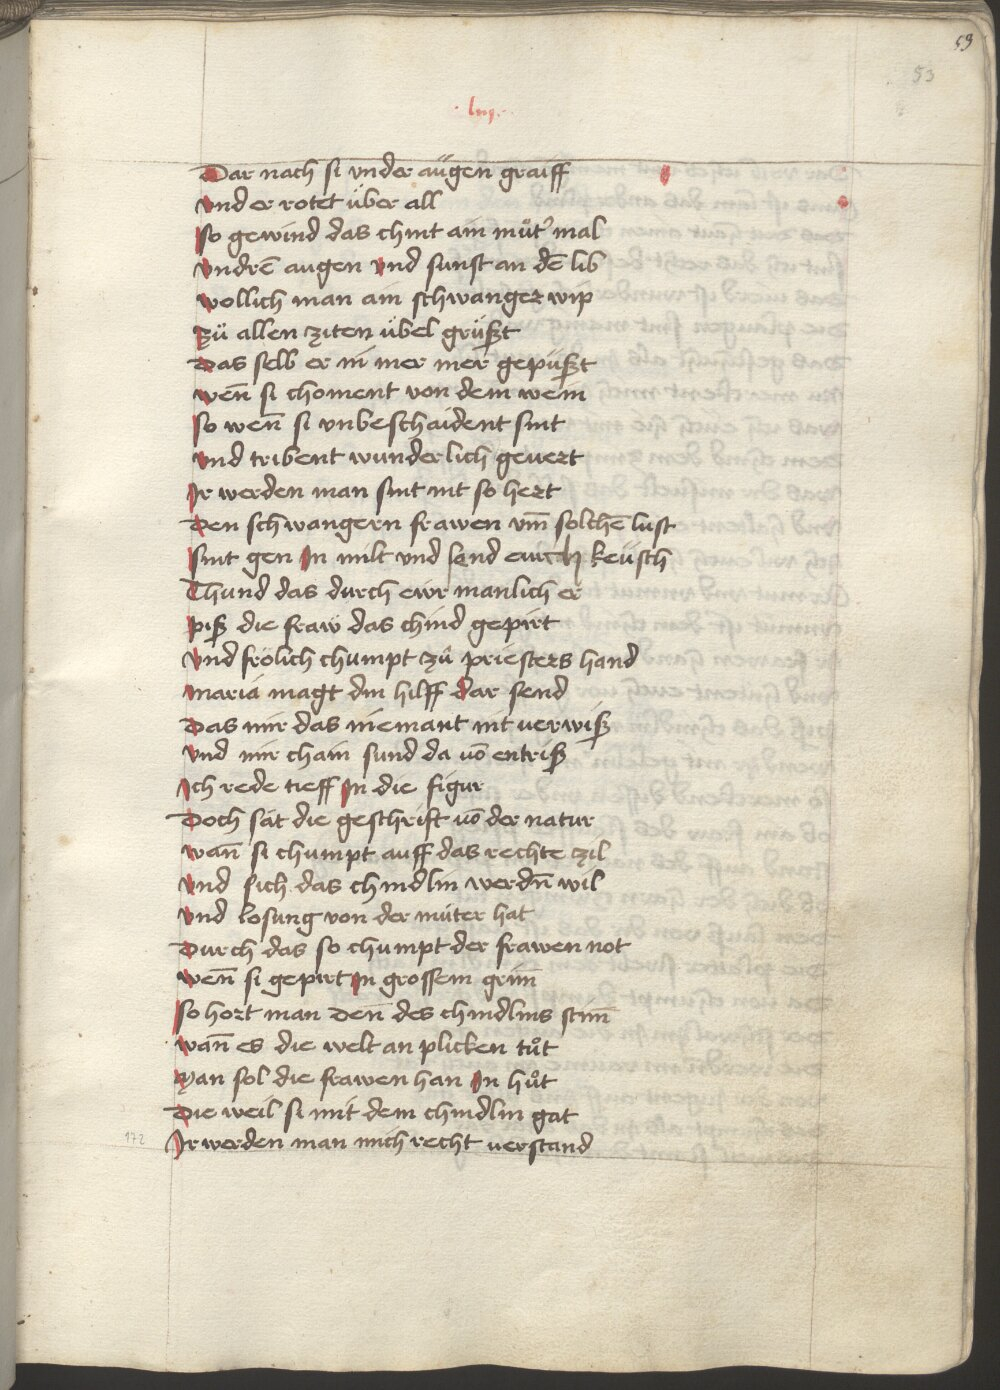 53
53
· liij ·
Dar nach si vnder augen graiff
vnd er rotet über all
So gewind das chint ain mut͛ mal
vndrē augen vnd sunst an dē lib
wollich man ain schwanger wip
zü allen ziten übel grüßt
Das selb er nimer mer gepüßt
wen̄ si choment von dem wein
So wen̄ si vnbeschaident sint
vnd tribent wunderlich geuert
Ir werden man sint nit so hert
Den schwangern frawen vm̄ solchē lust
Sint gen In milt vnd send euch keüsch
Thund das durch ewr manlich er
piß die fraw das chind gepirt
vnd frölich chumpt zů priesters hand
maria magt din hilff dar send
Das mir das niemant nit verwiß
vnd mir chain sund da vō entriß
Ich rede tieff In die figur
Doch sät die geschrift vō der natur
wan̄ si chumpt auff das rechte zil
vnd sich das chindlin werdn̄ wil
vnd losung von der muter hat
Durch das so chumpt der frawen not
wen̄ si gepirt In grossem grim̄
So hort man den̄ des chindlins stim̄
wan̄ es die welt an plicken tůt
Man sol die frawen han In hůt
Die weil si mit dem chindlin gat
Ir werden man mich recht verstand
172